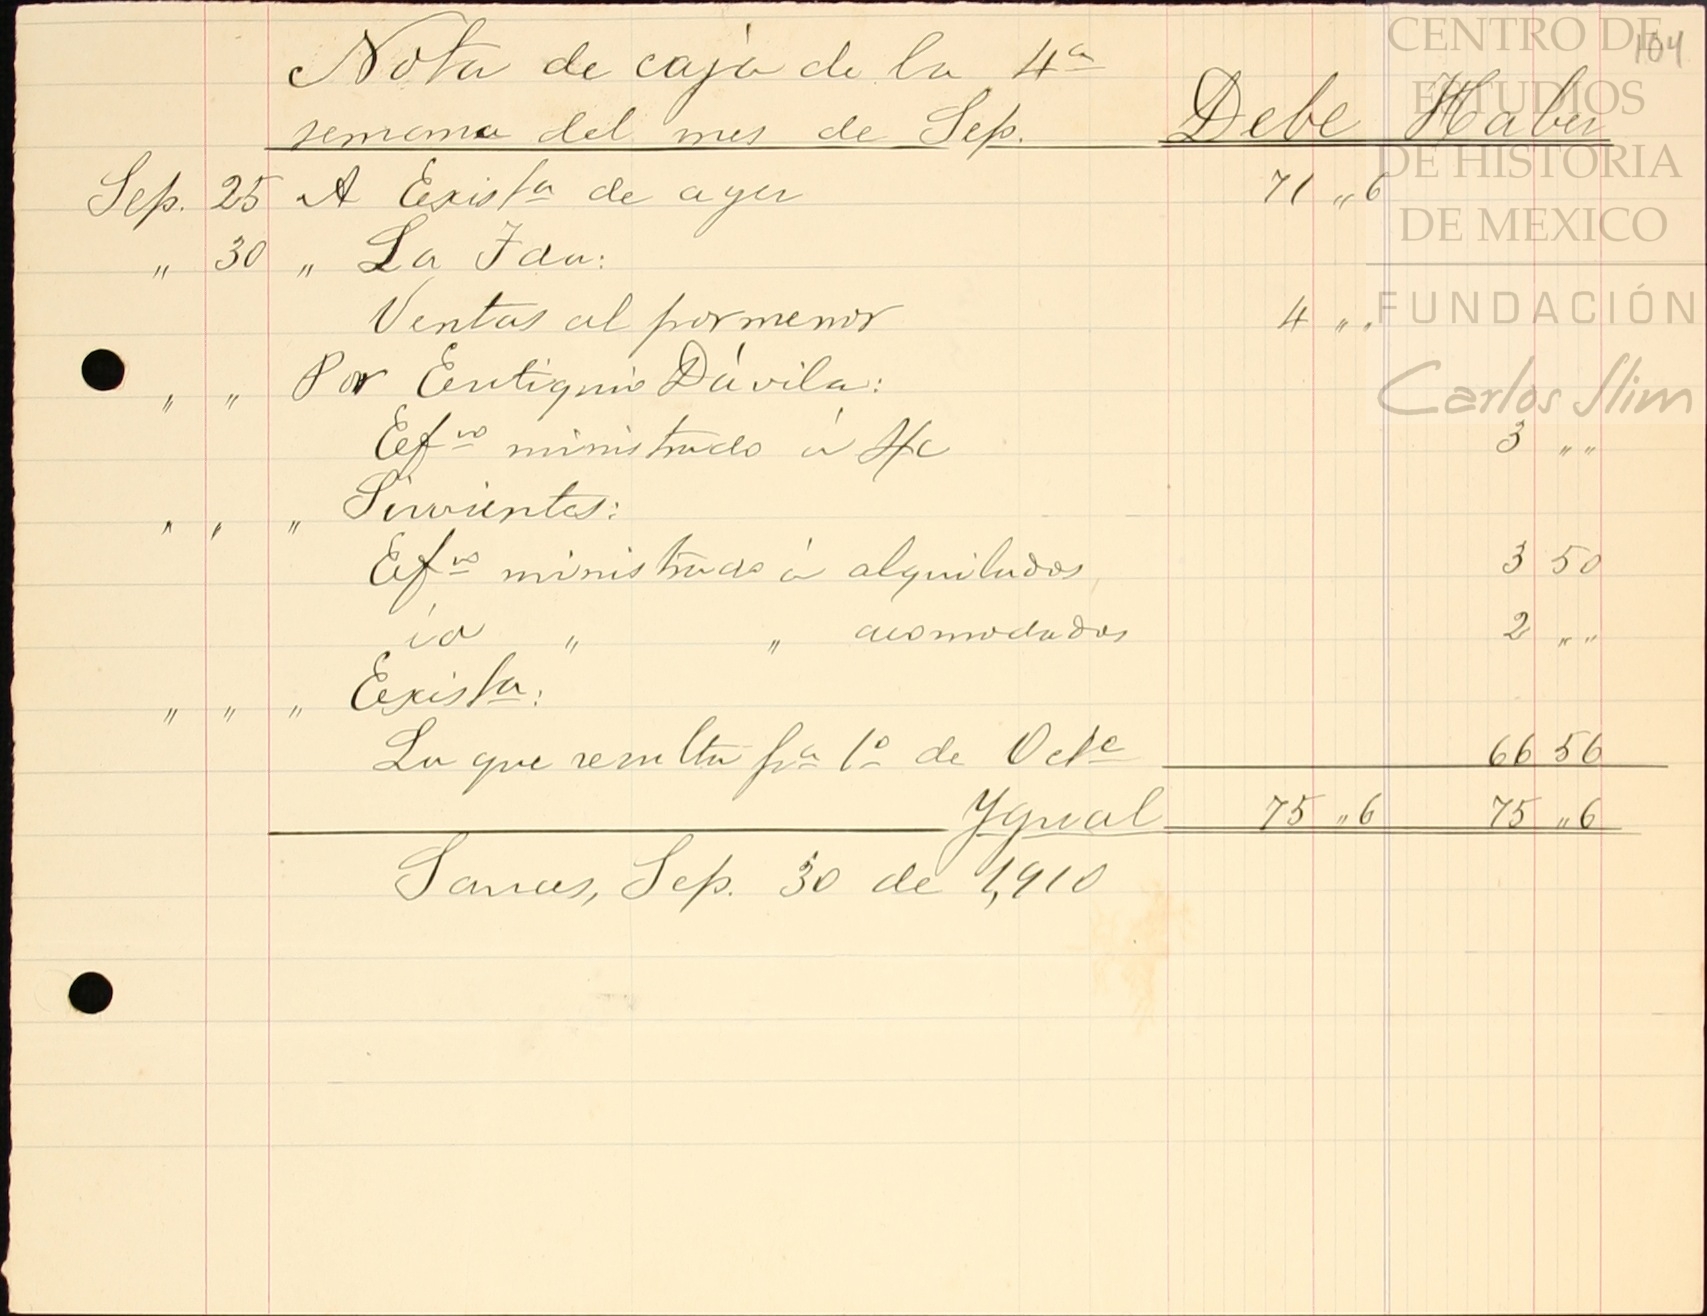 104
CENTRO DE
ESTUDIOS
DE HISTORIA
DE MEXICO
FUNDACIÓN
Carlos Slim
Nota de caja de la 4ª
semana del mes de Sep. Debe Haber
Sep. 25 A Existª de ayer 71 „6
„ 30 „ La Fda:
Ventas al pormenor 4 „„
„ „ Por Eutiquio Dávila:
Efvo ministrado á
3 „„
„ „ „ Sirvientes:
Efvo ministrado á alquilados 3 50
id „ „ acomodados 2 „„
„ „ „ Existª:
La que resulta pª 1º de Octe 66 56
Ygual 75 „6 75 „6
Sauces, Sep. 30 de 1,910